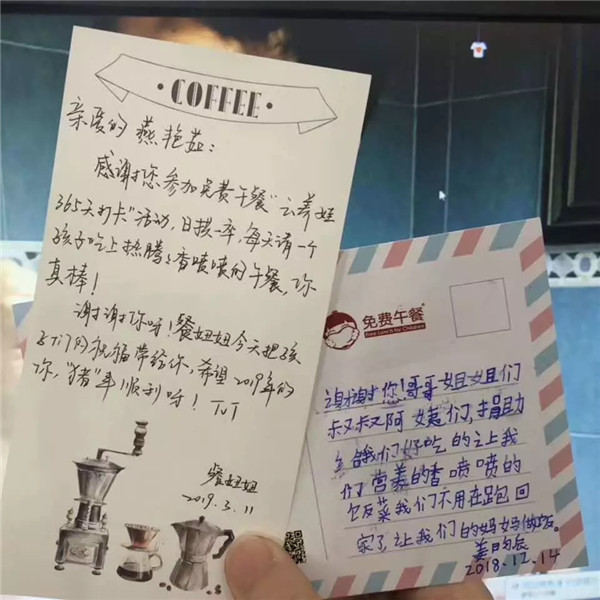 COFFEE
亲爱的 燕艳茹：
感谢您参加免费午餐“云养娃
365天打卡”活动，日捐一杯，每天请一个
孩子吃上热腾腾香喷喷的午餐，你
真棒！
谢谢你呀！餐妞妞今天把孩
子们的祝福带给你，希望2019年的
你，“猪”事顺利呀！TvT
餐妞妞
2019.3.11
免费午餐
Free Lunch for Children
谢谢您！哥哥姐姐们
叔叔阿姨们，捐助
给我们好吃的让我
们营养的香喷喷的
饭菜我们不用在跑回
家了让我们的妈妈做饭。
姜日辰
2018.12.14